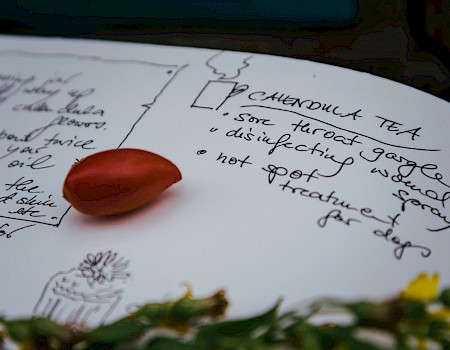 of
calendula
flowers.
twice
your
oil
the
etc.
CALENDULA TEA
• sore throat gargle
• disinfecting wound
spray
• hot spot
treatment
for dogs